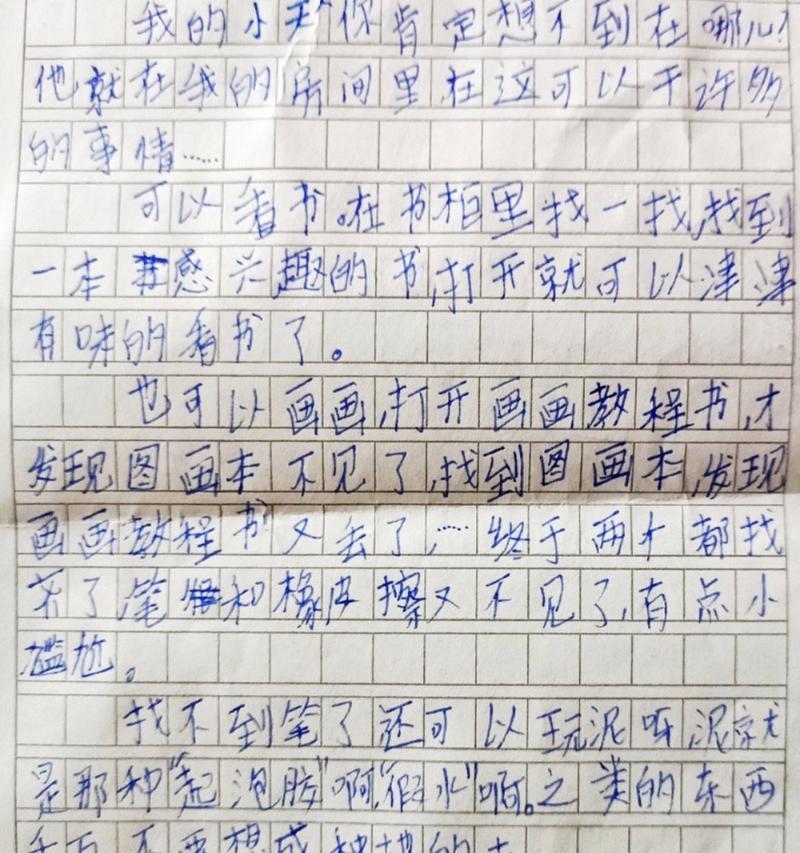 我的小天你肯定想不到在哪儿?
他就在我的房间里在这可以干许多
的事情……
可以看书。在书柜里找一找,找到
一本感兴趣的书,打开就可以津津
有味的看书了。
也可以画画,打开画画教程书,才
发现图画本不见了,找到图画本,发现
画画教程书又去了,……终于两个都找
齐了笔和橡皮擦又不见了,有点小
尴尬。
找不到笔了还可以玩泥呀泥就
是那种“起泡胶”啊,“假水”啊。之类的东西
千万不要想成种地的土